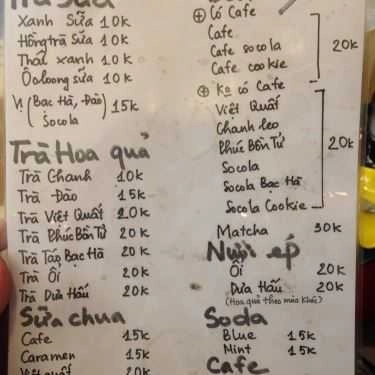 Trà Sữa
Xanh Sữa 10k
Hồng trà Sữa 10k
Thái xanh 10k
Ôoloong sữa 10k
Vị (Bạc Hà, Đào) 15k
Socola
Trà Hoa quả
Trà Chanh 10k
Trà Đào 15k
Trà Việt Quất 20k
Trà Phúc Bồn Tử 20k
Trà Táo Bạc Hà 20k
Trà Ổi 20k
Trà Dưa Hấu 20k
Sữa chua
Cafe 15k
Caramen 15k
Việt quất 20k
⊕ Có Cafe
Cafe
Cafe socola 20k
Cafe cookie
⊕ Ko có Cafe
Việt Quất
Chanh leo
Phúc Bồn Tử 20k
Socola
Socola Bạc Hà
Socola Cookie
Matcha 30k
Nước ép
Ổi 20k
Dưa Hấu 20k
(Hoa quả theo mùa khác)
Soda
Blue 15k
Mint 15k
Cafe